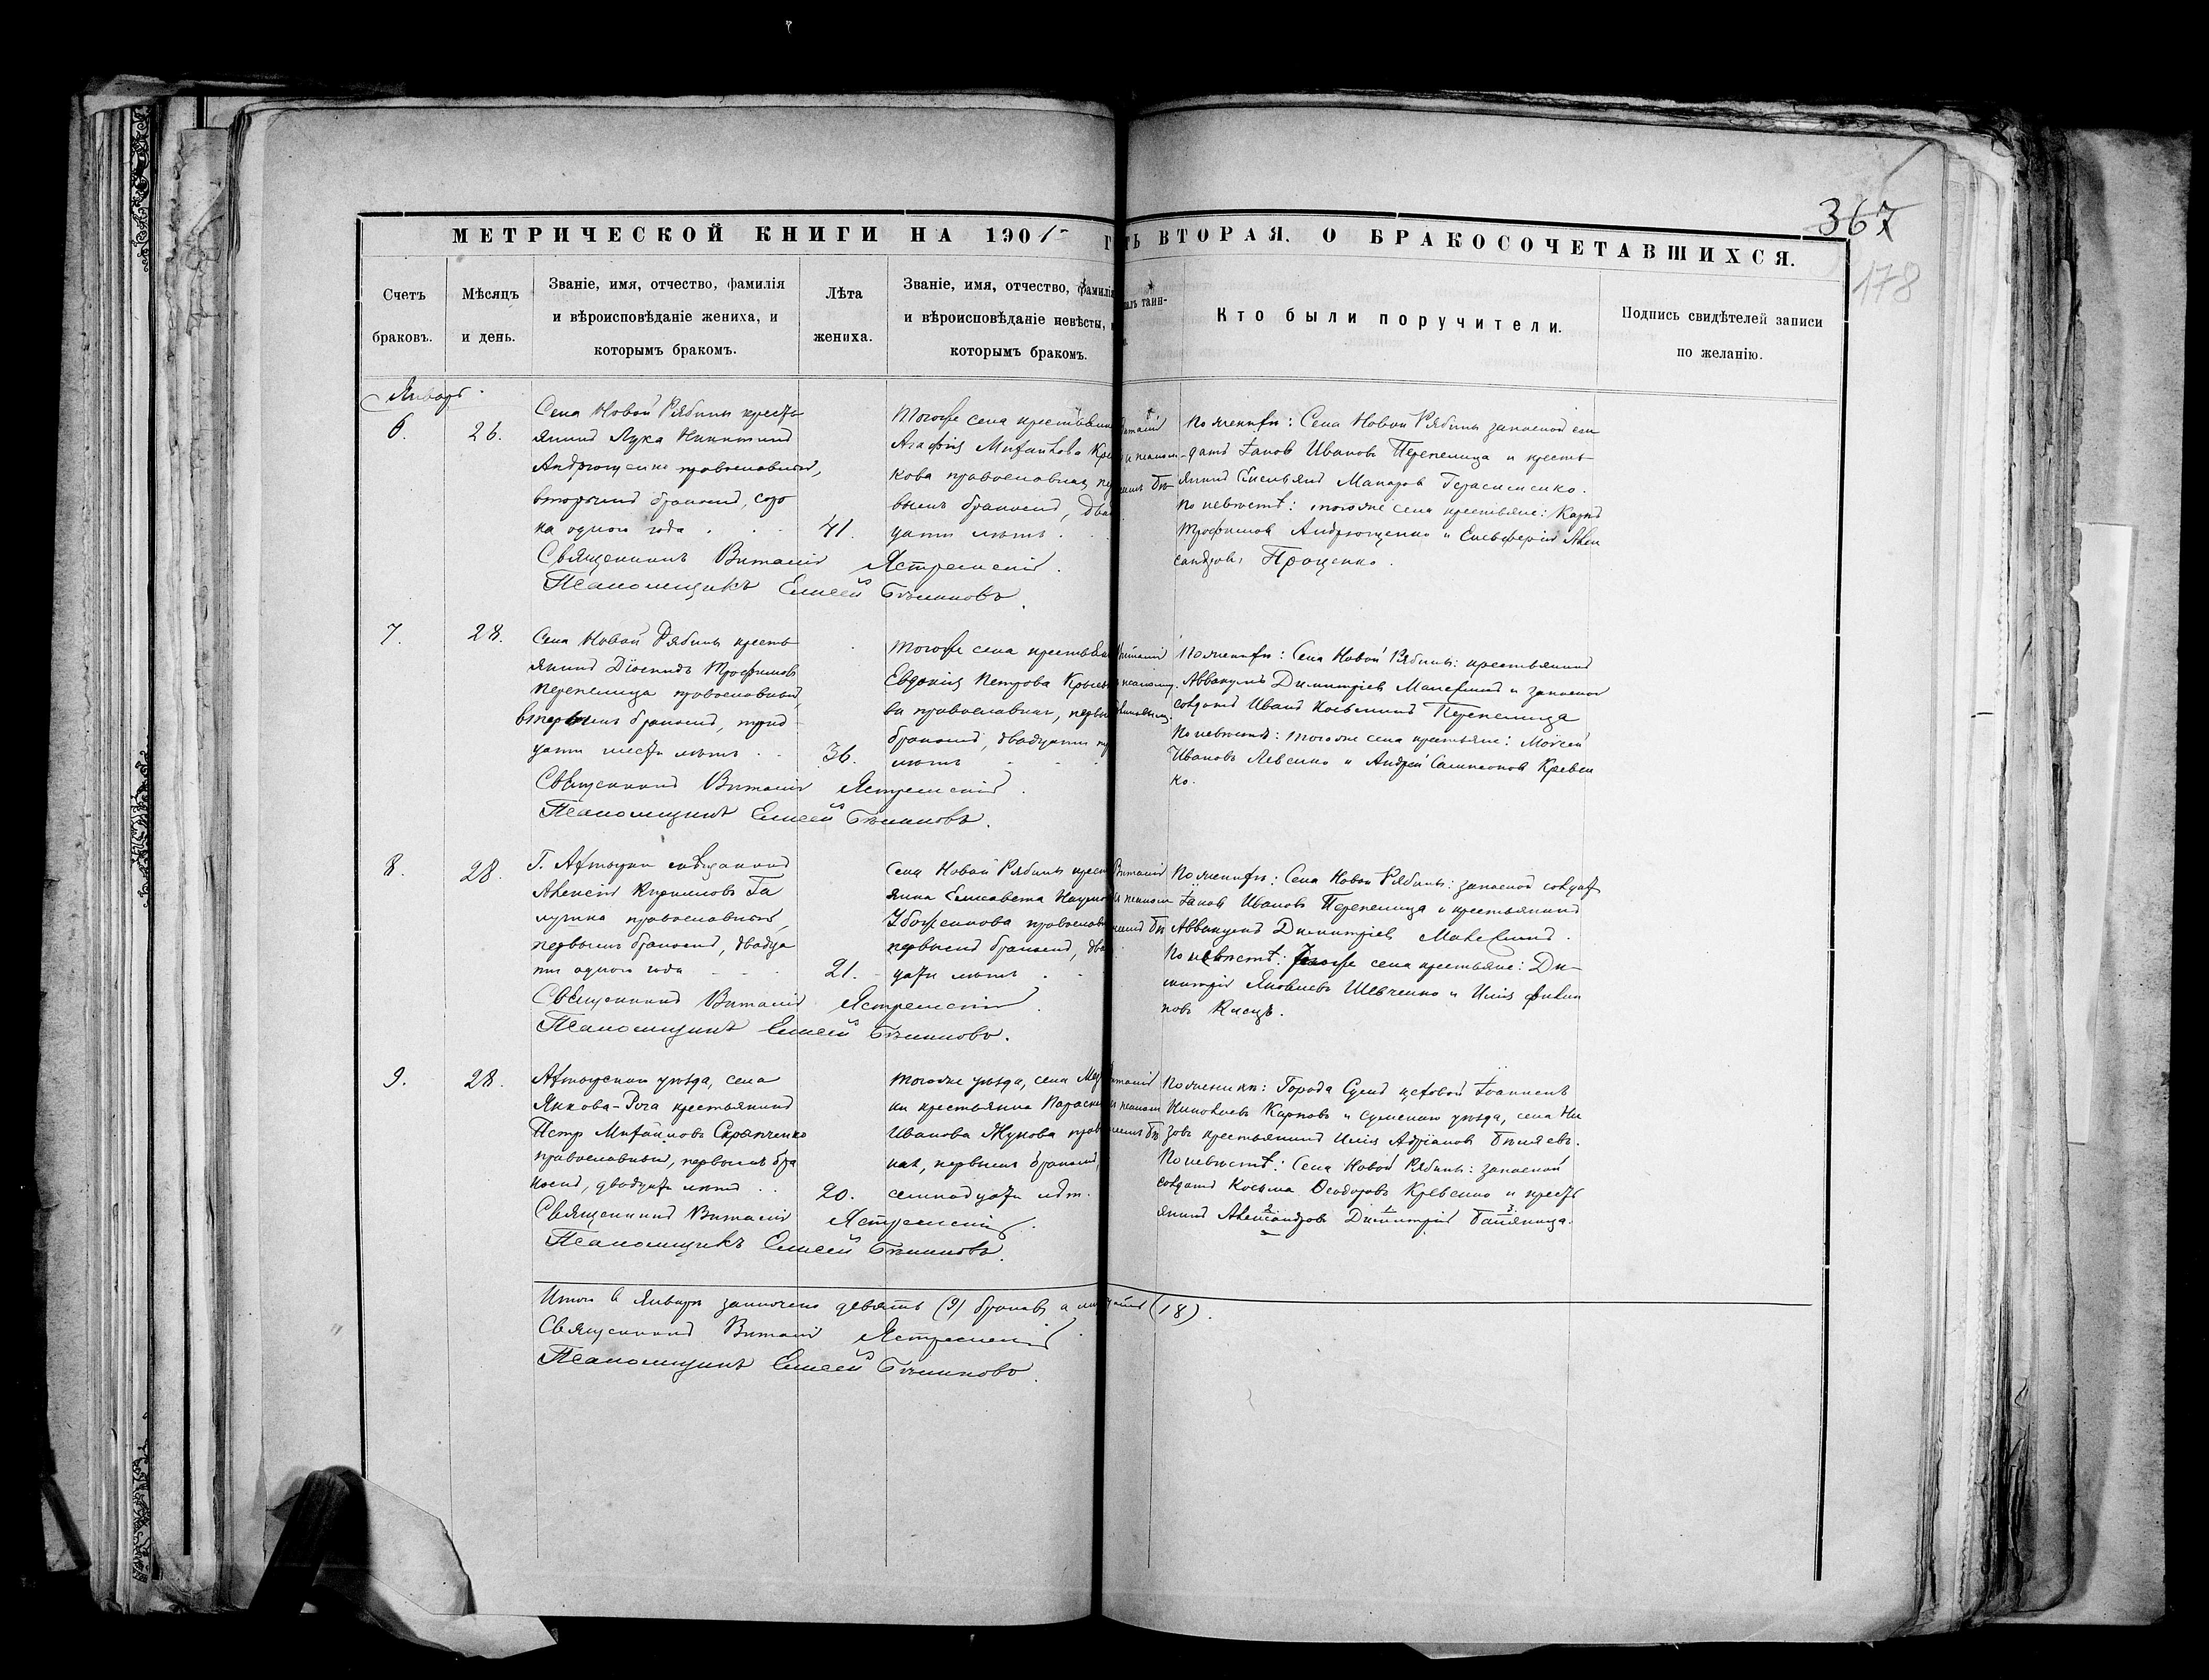 367
178
МЕТРИЧЕСКОЙ КНИГИ НА 1901 Г
ТЬ ВТОРАЯ. О БРАКОСОЧЕТАВШИХСЯ.
Счетъ браковъ.
Мѣсяцъ и день.
Званіе, имя, отчество, фамилія
и вѣроисповѣданіе жениха, и
которымъ бракомъ.
Лѣта жениха.
Званіе, имя, отчество, фамилія
и вѣроисповѣданіе невѣсты,
которымъ бракомъ.
таин-
Кто были поручители.
Подпись свидѣтелей записи
по желанію.
Январь.
6.
26.
Села Новой Рябины кресть
янинъ Лука Никитинъ
Андрющенко православный,
вторымъ бракомъ, соро
ка одного года
41.
Тогоже села крестьянка
Агафія Михайлова
кова православная
вымъ бракомъ, два
цати лѣтъ
По женихѣ: Села Новой Рябины запасной сол
датъ Іаковъ Ивановъ Перепелица и кресть
янинъ Емельянъ Макаровъ Герасименко.
По невѣстѣ: тогоже села крестьяне: Карпъ
Трофимовъ Андрющенко и Елевферій Алек
сандровъ Проценко.
Священникъ Виталій Ястремскій.
Псаломщикъ Елисей Бѣликовъ.
7.
28.
Села Новой Рябины кресть
янинъ Діомидъ Трофимовъ
Перепелица православный,
первымъ бракомъ, трид
цати шести лѣтъ
36.
Тогоже села крестьян
Евдокія Петрова
ва православная, первы
бракомъ, двадцати
лѣтъ
По женихѣ: Села Новой Рябины: крестьянинъ
Аввакумъ Димитріевъ и запасной
солдатъ Иванъ Косьминъ Перепелица
По невѣстѣ: тогоже села крестьяне: Моисей
Ивановъ Левенко и Андрей Сампсоновъ Кревен
ко.
Священникъ Виталій Ястремскій.
Псаломщикъ Елисей Бѣликовъ.
8.
28.
Г. Ахтырки мѣщанинъ
Алексій Кирилловъ Га
лушка православный,
первымъ бракомъ, двадца
ти одного года
21.
Села Новой Рябины крест
янка Елисавета Наумо
Убоженкова православ
первымъ бракомъ, два
цати лѣтъ
По женихѣ: Села Новой Рябины: запасной солдатъ
Іаковъ Ивановъ Перепелица и крестьянинъ
Аввакумъ Димитріевъ
По невѣстѣ: Тогоже села крестьяне: Ди
митрій Яковлевъ Шевченко и Илія Филип
повъ
Священникъ Виталій Ястремскій.
Псаломщикъ Елисей Бѣликовъ.
9.
28.
Ахтырскаго уѣзда, села
Янкова-Рога крестьянинъ
Петр Михайловъ Скряпченко
православный, первымъ бра
комъ, двадцати лѣтъ
20.
Тогоже уѣзда, села
ки крестьянка Параске
Иванова Жукова прав
ная, первымъ бракомъ,
семнадцати лѣт.
По женихѣ: Города Сумъ цеховой Іоанникъ
Николаевъ Карповъ и Сумскаго уѣзда, села Ни
зовъ крестьянинъ Илія Адріановъ Бѣляевъ.
По невѣстѣ: Села Новой Рябины: запасной
солдатъ Косьма Ѳеодоровъ Кревенко и кресть
янинъ Александровъ Димитрій
Священникъ Виталій Ястремскій.
Псаломщикъ Елисей Бѣликовъ.
Итого въ Январѣ заключено девять (9) браковъ а (18).
Священникъ Виталій Ястремскій.
Псаломщикъ Елисей Бѣликовъ.